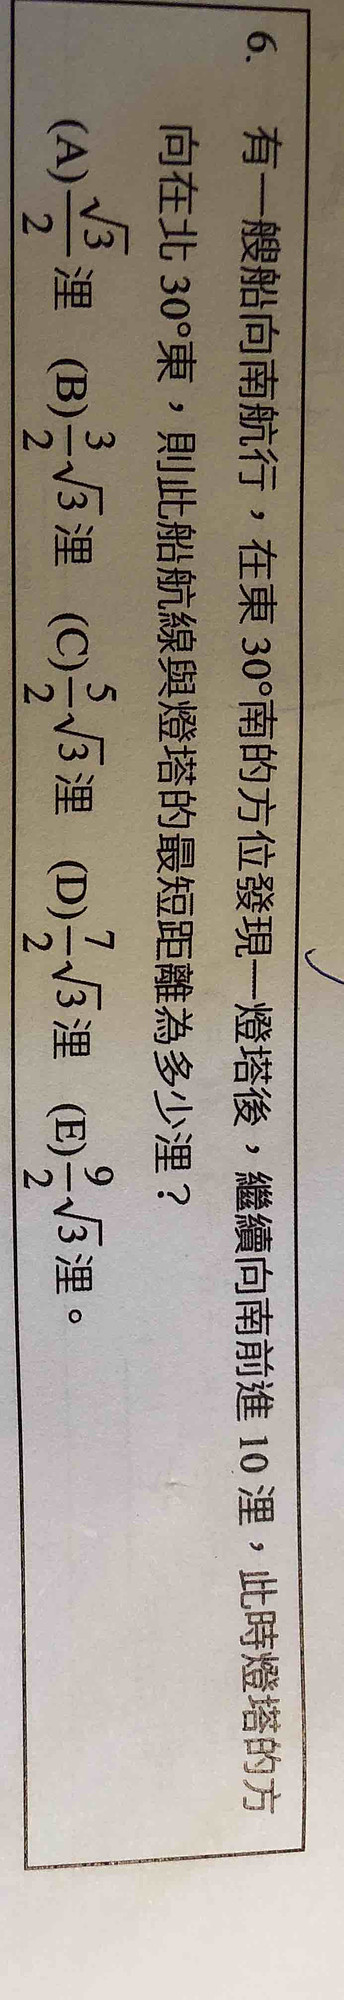 6. 有一艘船向南航行，在東 30°南的方位發現一燈塔後，繼續向南前進 10 浬，此時燈塔的方
向在北 30°東，則此船航線與燈塔的最短距離為多少浬？
(A) √3/2 浬 (B) 3/2 √3 浬 (C) 5/2 √3 浬 (D) 7/2 √3 浬 (E) 9/2 √3 浬。